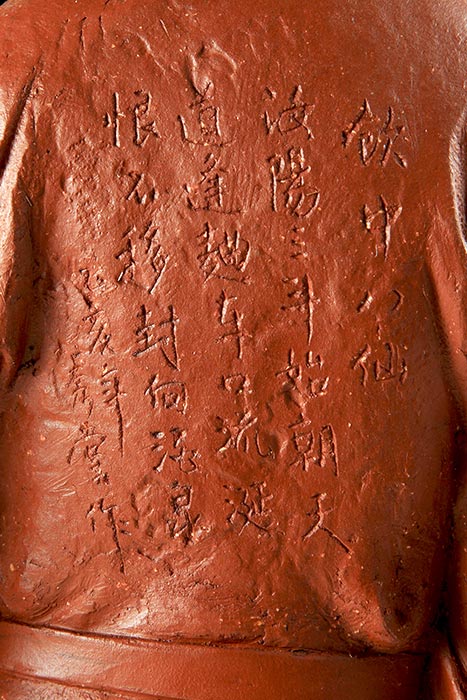 飲中八仙
汝陽三斗始朝天
道逢麯車口流涎
恨不移封向酒泉
亥年
堂作